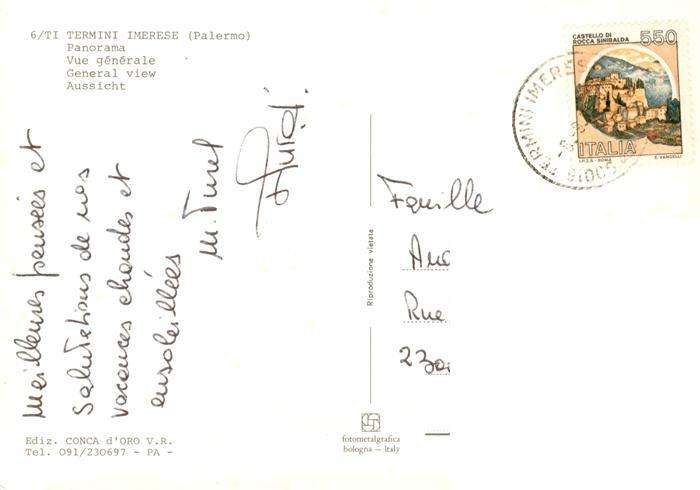 6/TI TERMINI IMERESE (Palermo)
Panorama
Vue générale
General view
Aussicht
Meilleures pensées et
Salutations de nos
vacances chaudes et
ensoleillées
M. Turel
CASTELLO DI
ROCCA SINIBALDA
550
ITALIA
I.P.Z.S. - ROMA
E. VANGELLI
TERMINI IMERESE
90018
Famille
Rue
Riproduzione vietata
fotometalgrafica
bologna - italy
Ediz. CONCA d'ORO V.R.
Tel. 091/230697 - PA -